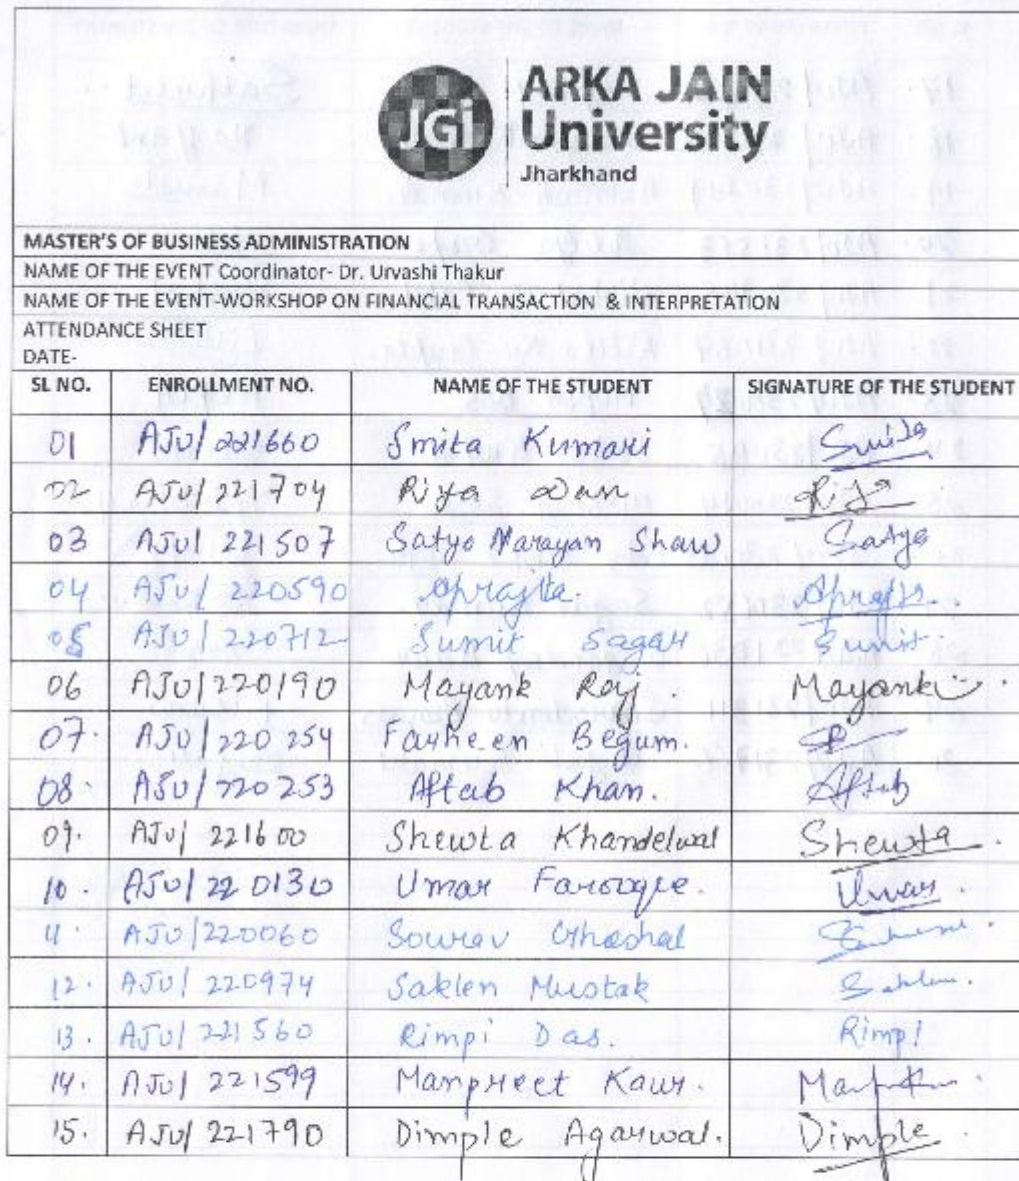 JGi
ARKA JAIN
University
Jharkhand
MASTER'S OF BUSINESS ADMINISTRATION
NAME OF THE EVENT Coordinator- Dr. Urvashi Thakur
NAME OF THE EVENT-WORKSHOP ON FINANCIAL TRANSACTION & INTERPRETATION
ATTENDANCE SHEET
DATE-
SL NO. ENROLLMENT NO. NAME OF THE STUDENT SIGNATURE OF THE STUDENT
01 AJU/221660 Smita Kumari Smita
02 AJU/221704 Riya Riya
03 AJU/221507 Satyo Narayan Shaw Satya
04 AJU/220590 Aprajita. Aprajita.
05 AJU/220712 Sumit Sagar Sumit
06 AJU/220190 Mayank Raj. Mayank
07. AJU/220254 Farheen Begum.
08. AJU/220253 Aftab Khan. Aftab
09. AJU/221600 Shewta Khandelwal Shewta
10 AJU/220130 Umar Farooque. Umar.
11. AJU/220060 Sourav
12. AJU/220974 Saklen Mustak Saklen.
13. AJU/221560 Rimpi Das. Rimpi
14. AJU/221599 Manpreet Kaur.
15. AJU/221790 Dimple Agarwal. Dimple